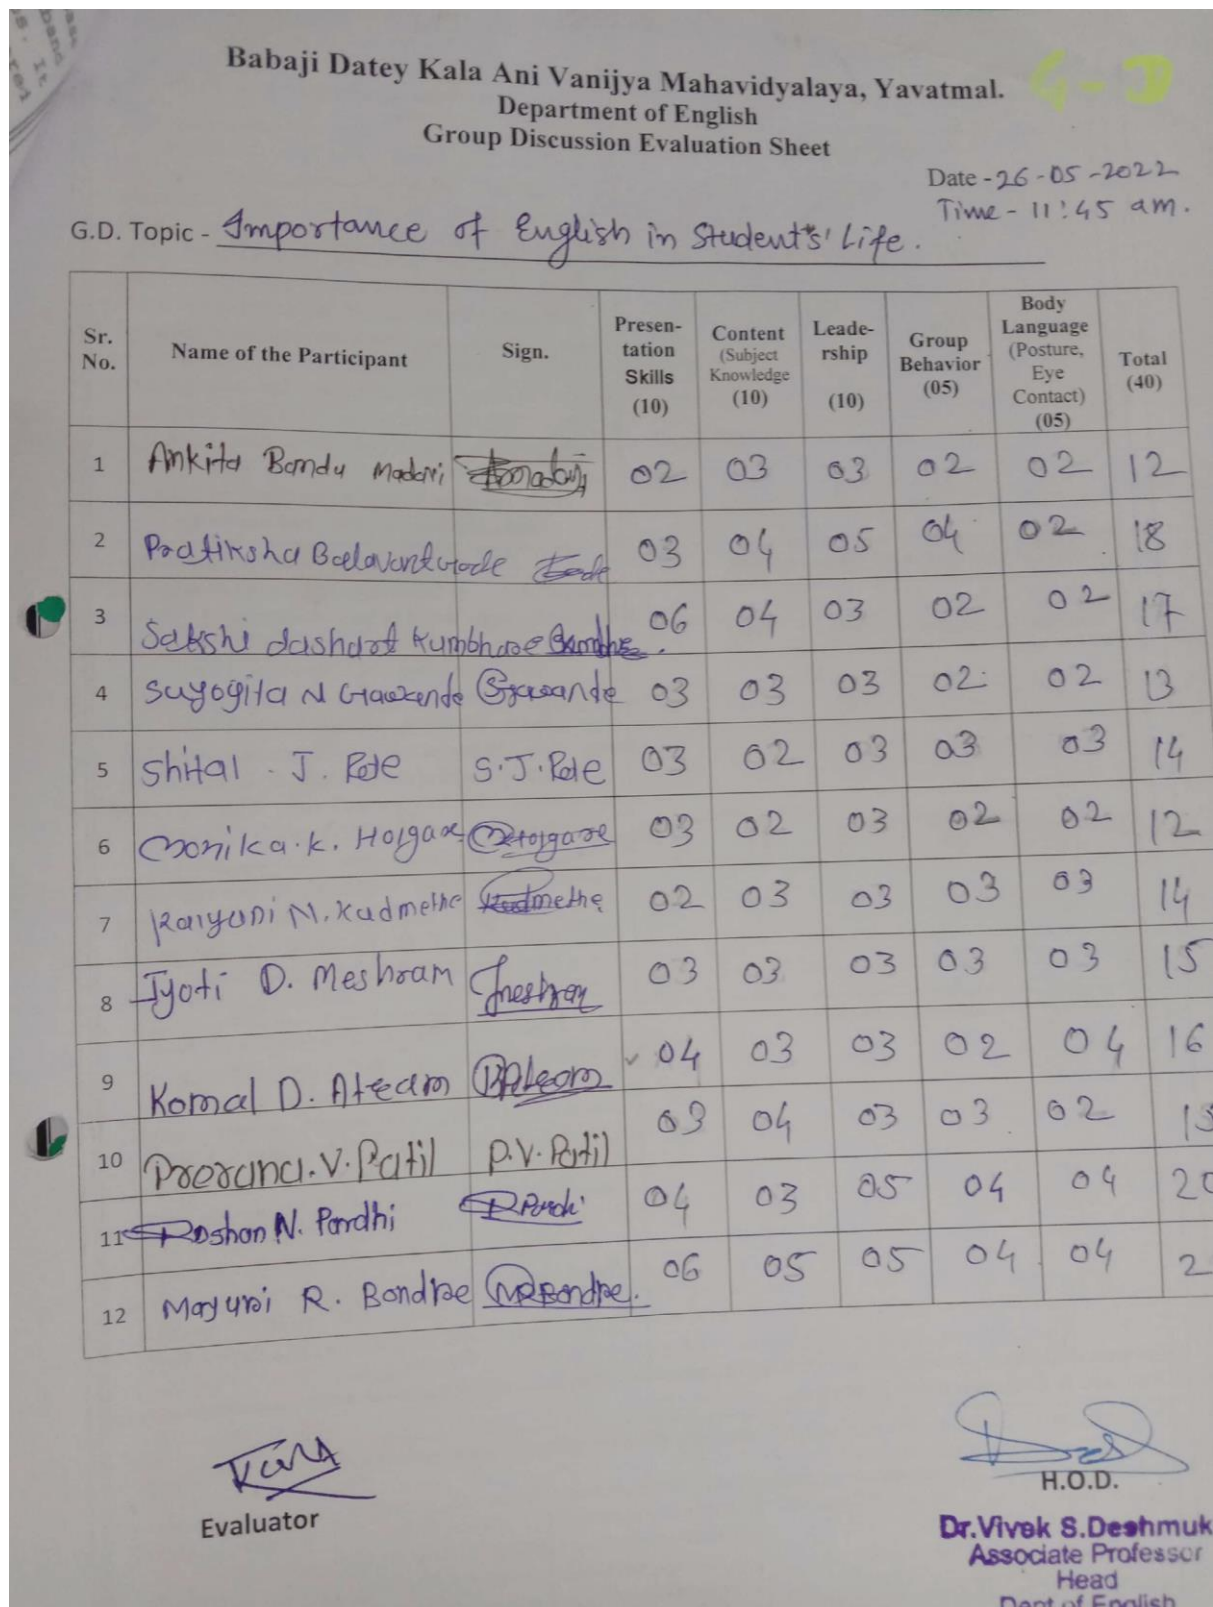 Babaji Datey Kala Ani Vanijya Mahavidyalaya, Yavatmal.
G-D
Department of English
Group Discussion Evaluation Sheet
Date - 26-05-2022
Time - 11:45 am.
G.D. Topic - Importance of English in Student's' Life.
Sr. No. Name of the Participant Sign. Presen-tation Skills (10) Content (Subject Knowledge (10) Leade-rship (10) Group Behavior (05) Body Language (Posture, Eye Contact) (05) Total (40)
1 Ankita Bandu Madavi 02 03 03 02 02 12
2 Pratiksha Balavant Gode 03 04 05 04 02 18
3 Sakshi dasharat Kumbhare 06 04 03 02 02 17
4 Suyogita N Gawande Gawande 03 03 03 02 02 13
5 Shital . J. Rode S.J.Rode 03 02 03 03 03 14
6 Monika.k. Horgare Horgare 03 02 03 02 02 12
7 Kalyani M. Kudmethe Kudmethe 02 03 03 03 03 14
8 Jyoti D. Meshram 03 03 03 03 03 15
9 Komal D. Ateram 04 03 03 02 04 16
10 Prerana.V.Patil P.V.Patil 03 04 03 03 02
11 Roshan N. Pardhi 04 03 05 04 04 20
12 Mayuri R. Bondre MRBondre. 06 05 05 04 04 2
Evaluator
H.O.D.
Dr.Vivek S.Deshmuk
Associate Professor
Head
Dept of English